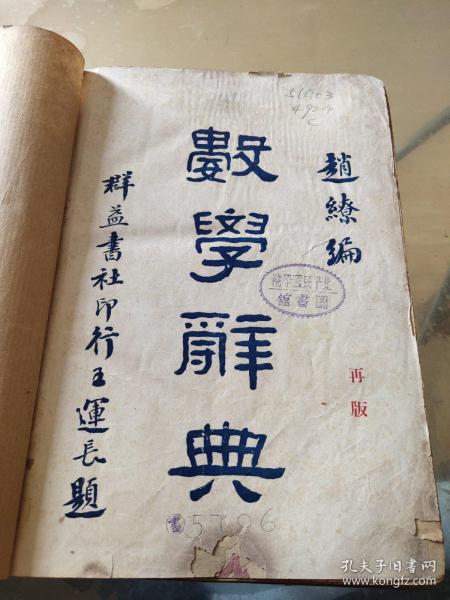 趙繚編
數學辭典
群益書社印行王運長題
再版
北平民國學院
圖書館
書
5706
孔夫子旧书网
www.kongfz.com